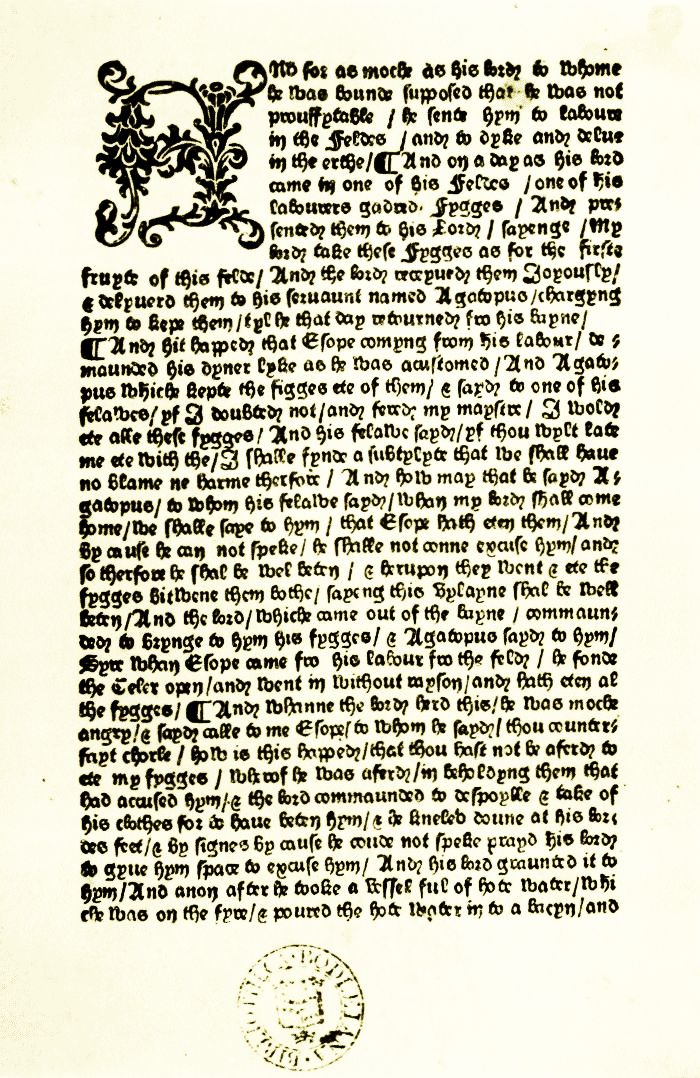 ANd for as moche as his lord to whome
he was bounde supposed that he was not
prouffytable / he sente hym to laboure
in the Feldes / and to dyke and delue
in the erthe/ ¶ And on a day as his lord
came in one of his Feldes / one of his
labourers gadred. Fygges / And pre⸗
sented them to his Lord / sayenge / My
lord take these Fygges as for the firste
fruyte of this felde/ And the lord receyued them Joyously/
& delyuerd them to his seruaunt named Agatopus /chargyng
hym to kepe them/tyl he that day retourned fro his bayne/
¶ And hit happed that Esope comyng from his labour/ de⸗
maunded his dyner lyke as he was acustomed /And Agato⸗
pus whiche kepte the figges ete of them/ & sayd to one of his
felawes/ yf I doubted not/and fered my maystre/ I wold
ete alle these fygges/ And his felawe sayd/yf thou wylt late
me ete with the/I shalle fynde a subtylyte that we shall haue
no blame ne harme therfore / And how may that be sayd A⸗
gatopus/ to whom his felawe sayd/whan my lord shall come
home/we shalle saye to hym / that Esope hath eten them/And
by cause he can not speke/ he shalle not conne excuse hym/ and
so therfore he shal be wel beten / & herupon they went & ete the
fygges bitwene them bothe/ sayeng this vylayne shal be well
beten/And the lord/whiche came out of the bayne / commaun⸗
ded to brynge to hym his fygges/ & Agatopus sayd to hym/
Syre whan Esope came fro his labour fro the feld / he fonde
the Celer open/and went in without rayson/and hath eten al
the fygges/ ¶ And whanne the lord herd this/he was moche
angry/& sayd calle to me Esope/ to whom he sayd/ thou counter⸗
fayt chorle / how is this happed/that thou hast not be aferd to
ete my fygges / wherof he was aferd/in beholdyng them that
had accused hym/& the lord commaunded to despoylle & take of
his clothes for to haue beten hym/& he kneled doune at his lor⸗
des feet/& by signes by cause he coude not speke prayd his lord
to gyue hym space to excuse hym/ And his lord graunted it to
hym/And anon after he tooke a vessel ful of hote water/whi
che was on the fyre/& poured the hote water in to a bacyn/and
BIBLIOTHECA · BODLEIANA ·